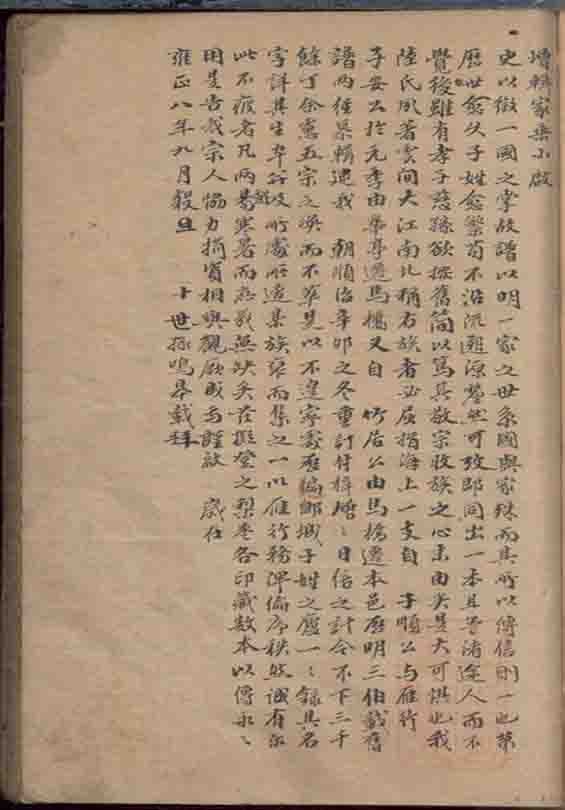 增輯家乘小啟
史以徵一國之掌故譜以明一家之世系國與家殊而其所以傳信則一也第
歷世愈久子姓愈繁苟不沿流遡源鑿然可攷即同出一本且等諸途人而不
覺後雖有孝子慈孫欲探舊簡以篤其敬宗收族之心末由矣是大可懼也我
陸氏夙著雲間大江南北稱右族者必屈指海上一支自 子順公与雁行
子安公於元季由華亭遷馬橋又自 竹居公由馬橋遷本邑歷明三伯載舊
譜兩經纂輯逮我 朝順治辛卯之冬重訂付梓 日倍之計今不下三千
餘丁余憲五宗之 而不 見以不遑寧處 鄉城子姓之 一一錄其名
字詳其生卒 所 所 某族 而集之一以雁行務渾倫序秩然 有
此不疲者凡兩易寒暑而 無缺矣 擬登之梨棗各印藏數本以傳永久
用是告我宗人協力捐資相與觀厥成焉謹啟 歲在
雍正八年九月穀旦 十世孫鳴 載拜